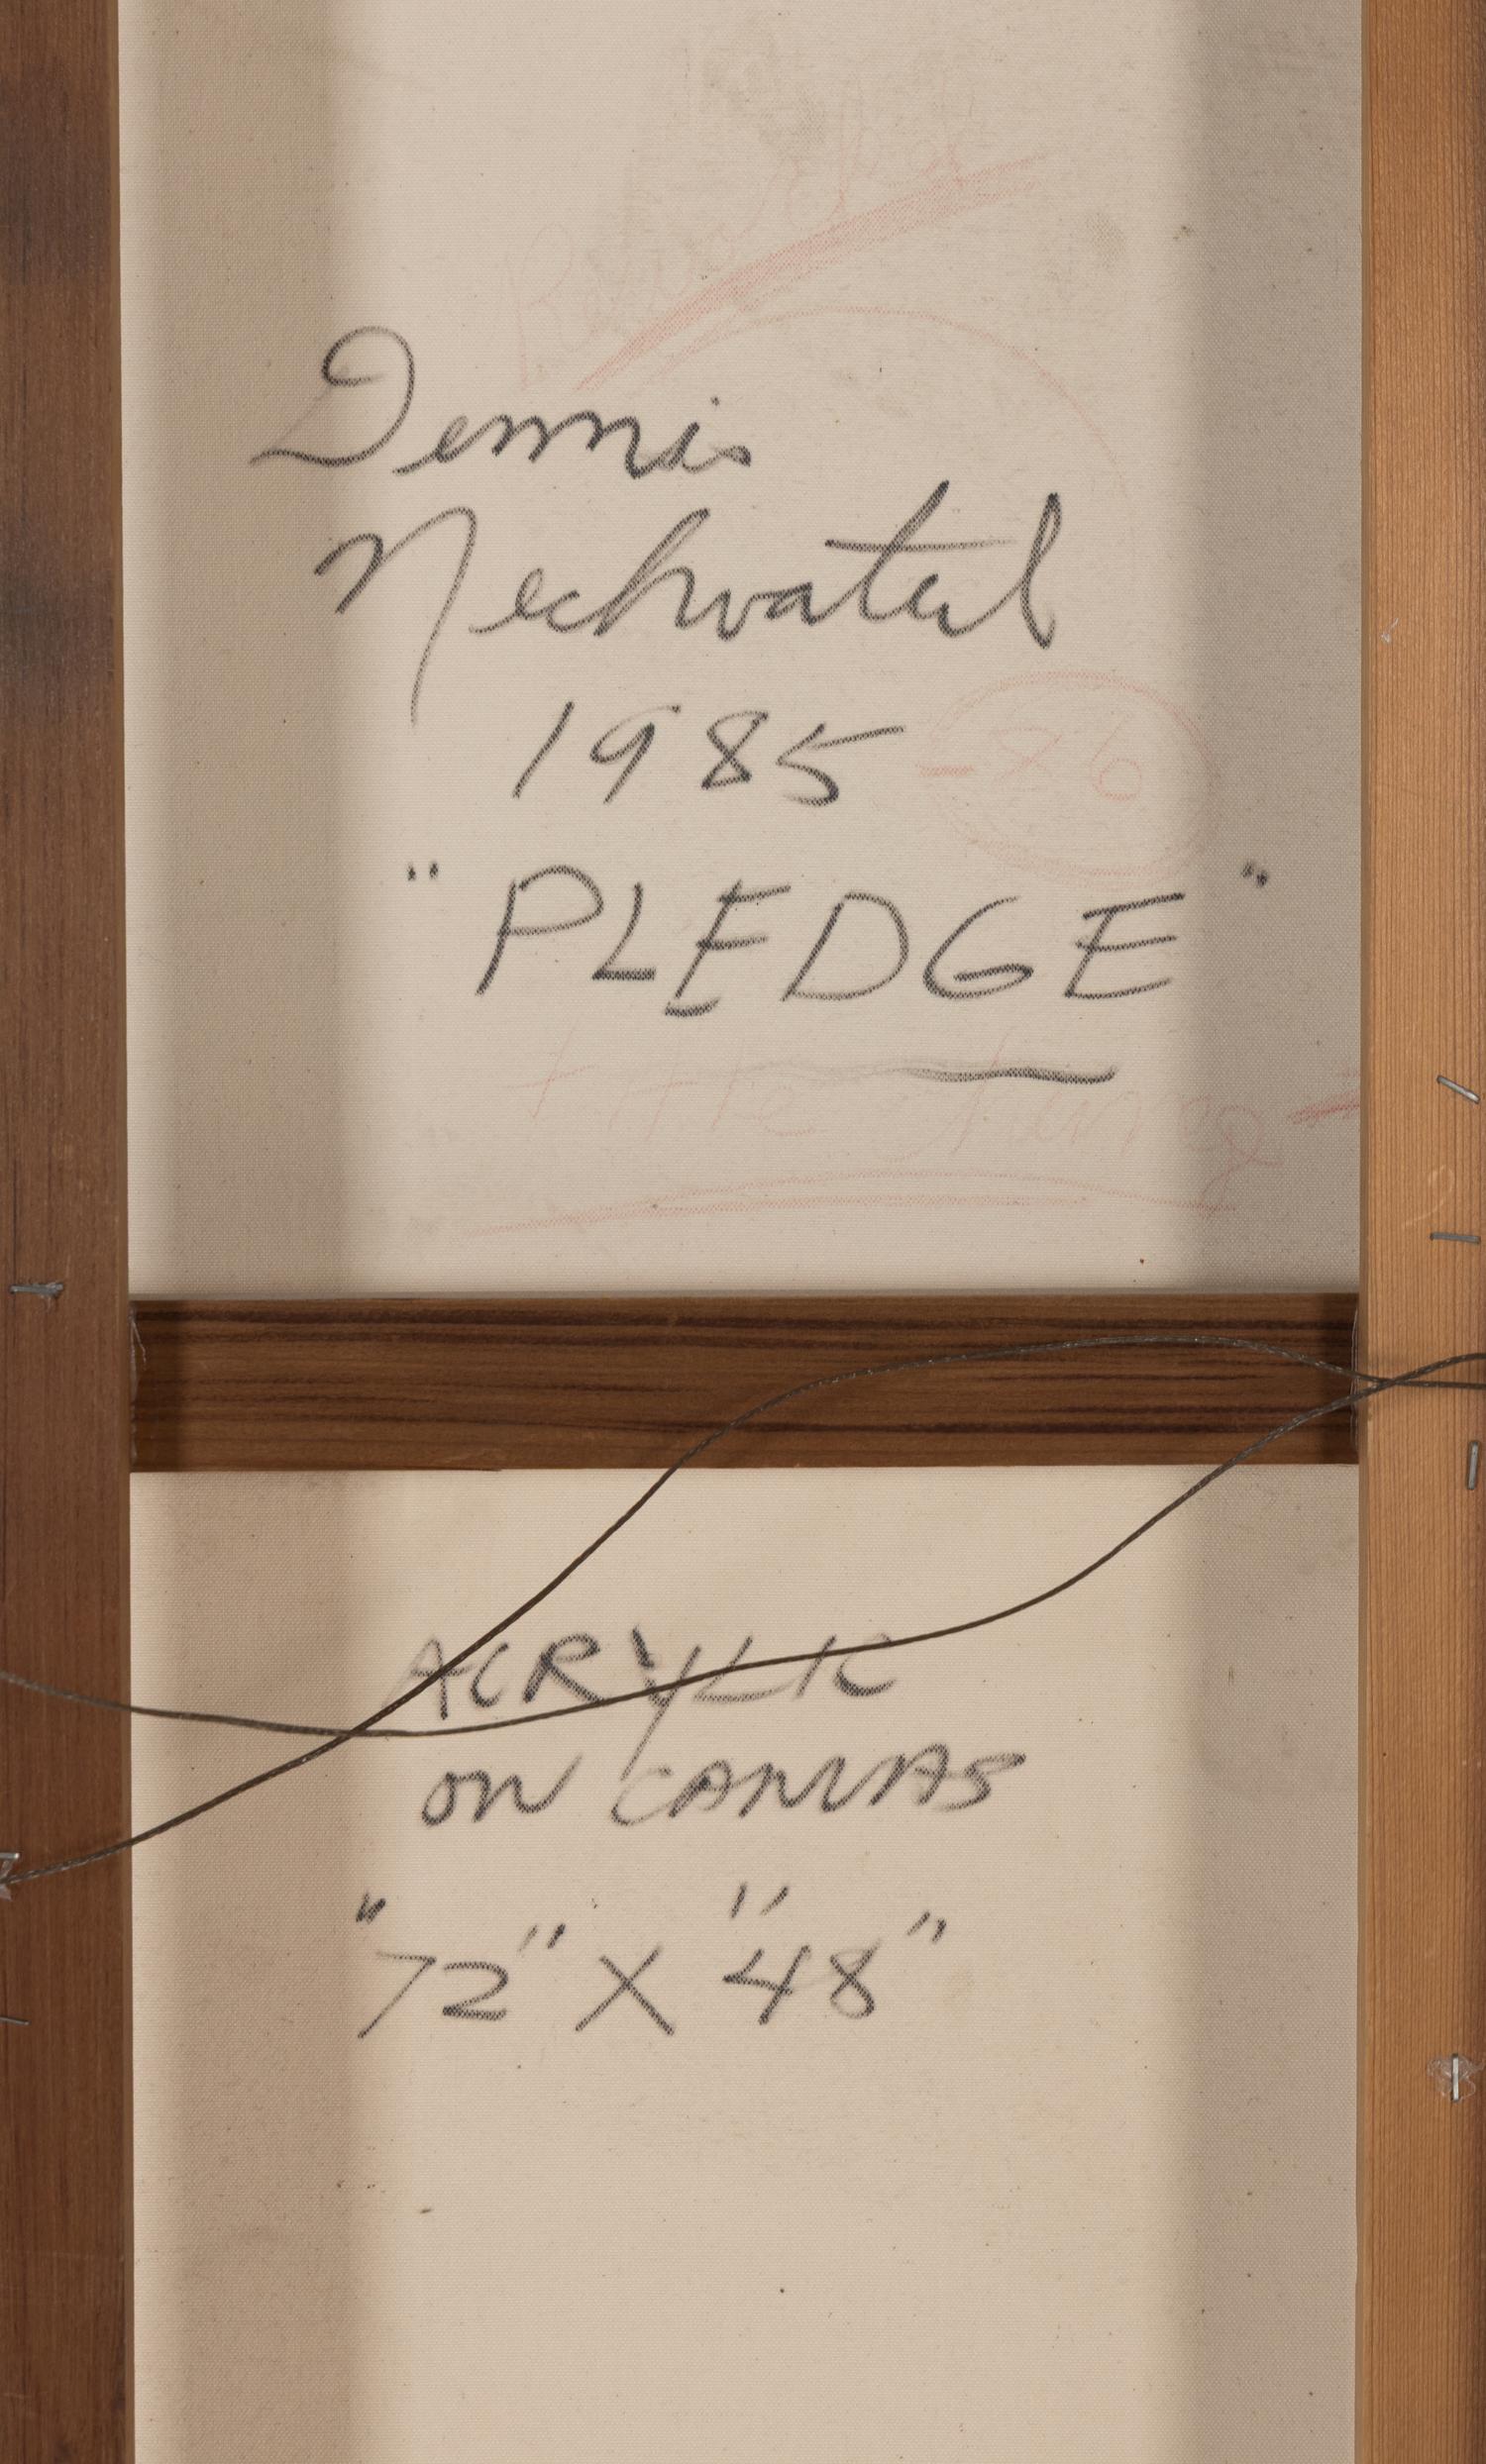 Dennis
Nechvatal
1985
-86
"PLEDGE"
ACRYLIC
ON CANVAS
"72" X "48"